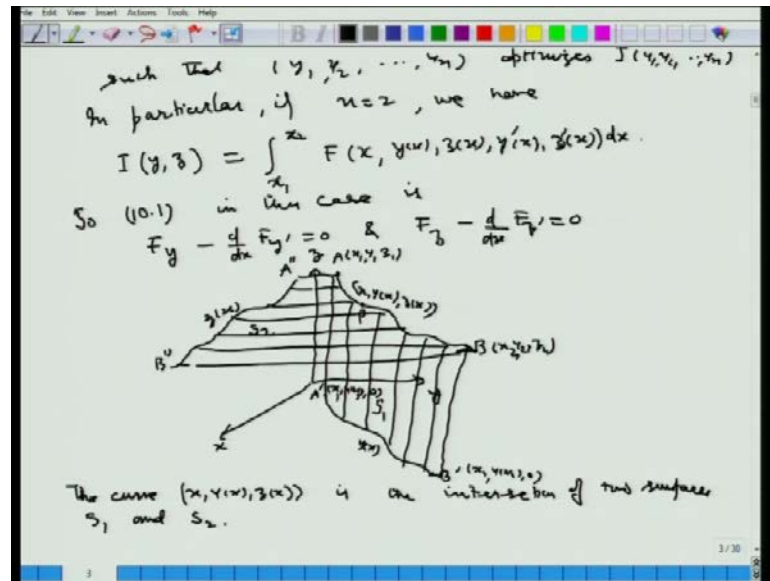 File Edit View Insert Actions Tools Help
such that (y₁, y₂, ..., yₙ) optimizes I(y₁, y₂, .., yₙ)
In particular, if n=2, we have
I(y,z) = ∫_{x₁}^{x₂} F(x, y(x), z(x), y'(x), z'(x)) dx.
So (10.1) in this case is
F_y - d/dx F_y' = 0 & F_z - d/dx F_z' = 0
A'' z A(x₁, y₁, z₁)
(x, y(x), z(x))
z(x) P
S₂
B'' B(x₂, y₂, z₂)
A' (x₁, y(x₁), 0) y
S₁
x y(x)
B' (x₂, y(x₂), 0)
The curve (x, y(x), z(x)) is the intersection of two surfaces
S₁ and S₂.
3/30
3